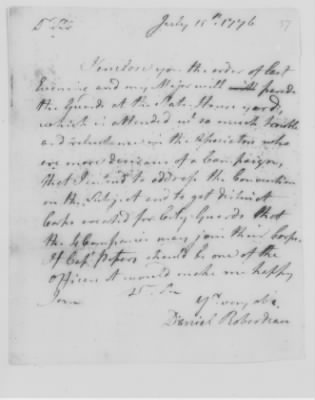 July 15th. 1776 37
D Sir
I enclose you the order of last
Evening and my Major will parade
the Guards at the State House yard,
which is attended wt. so much trouble
and reluctance in the Associators who
are more desirous of a Campaign,
that I intend to address the Convention
on the Subject and to get distinct
Corps created for City Guards that
the 4 Companies may join their Corps.
If Capt. Peters should be one of the
Officers it would make me happy
I am
D. Sir
Yr. very obt.
Daniel Roberdeau